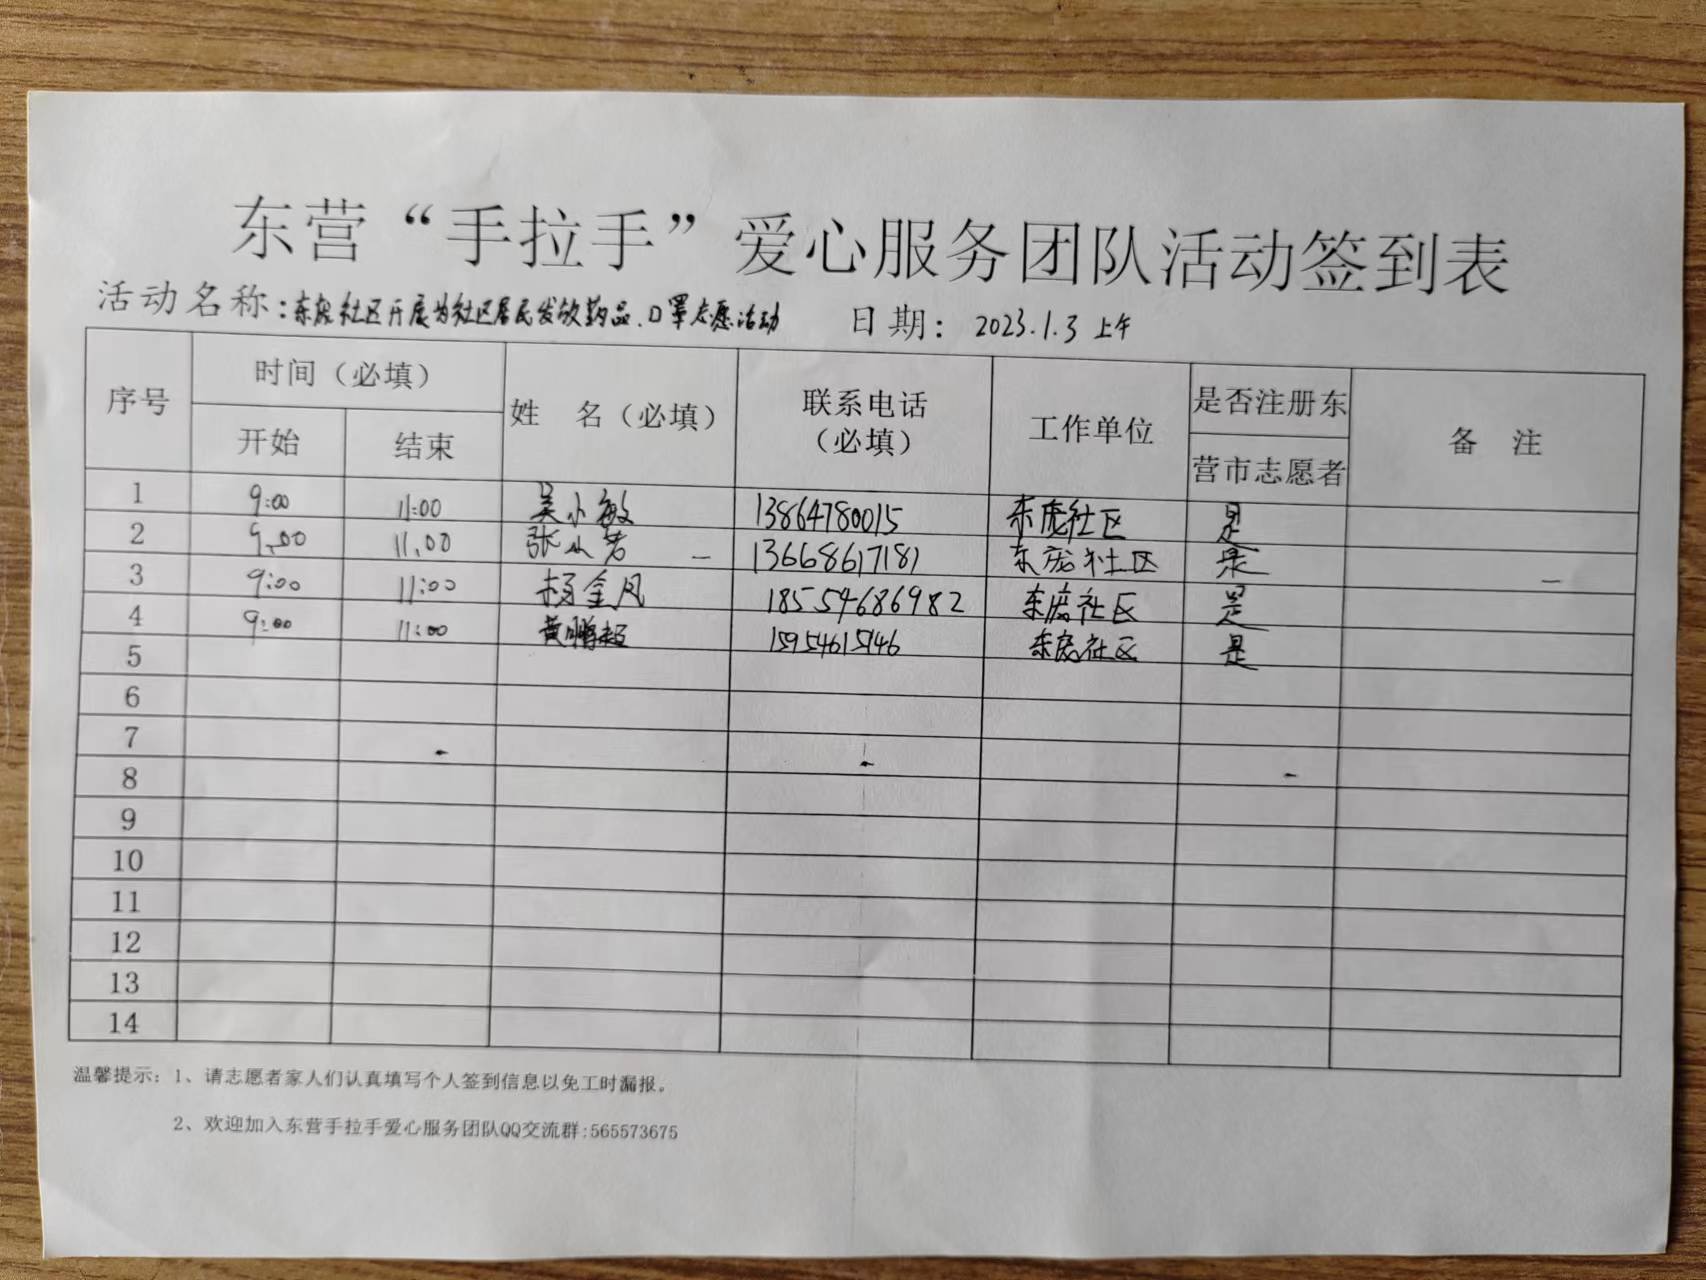 东营“手拉手”爱心服务团队活动签到表
活动名称：东庞社区开展为社区居民发放药品、口罩志愿活动 日期：2023.1.3 上午
序号 时间（必填） 姓 名（必填） 联系电话（必填） 工作单位 是否注册东营市志愿者 备 注
开始 结束
1 9:00 11:00 吴小敏 13864780015 东庞社区 是
2 9:00 11:00 张小芳 13668617181 东庞社区 是
3 9:00 11:00 杨金凤 18554686982 东庞社区 是
4 9:00 11:00 黄鹏超 15954615146 东庞社区 是
5
6
7
8
9
10
11
12
13
14
温馨提示：1、请志愿者家人们认真填写个人签到信息以免工时漏报。
2、欢迎加入东营手拉手爱心服务团队QQ交流群:565573675